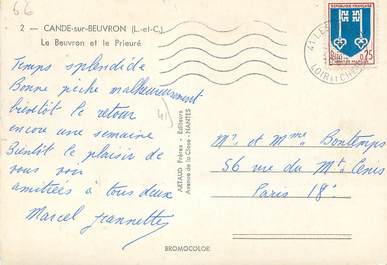 66
2 - CANDE-sur-BEUVRON (L.-et-C.)
Le Beuvron et le Prieuré
Temps splendide
Bonne pêche malheureusement
bientôt le retour
encore une semaine
Bientôt le plaisir de
vous voir
amitiées à tous deux
Marcel Jeannette
41)
ARTAUD Frères - Editeurs
Avenue de la Close - NANTES
BROMOCOLOR
REPUBLIQUE FRANCAISE
0,25
41 LES
LOIR ET CHER
Mr et Mme Bontemps
56 rue du Mt Cénis
Paris 18e